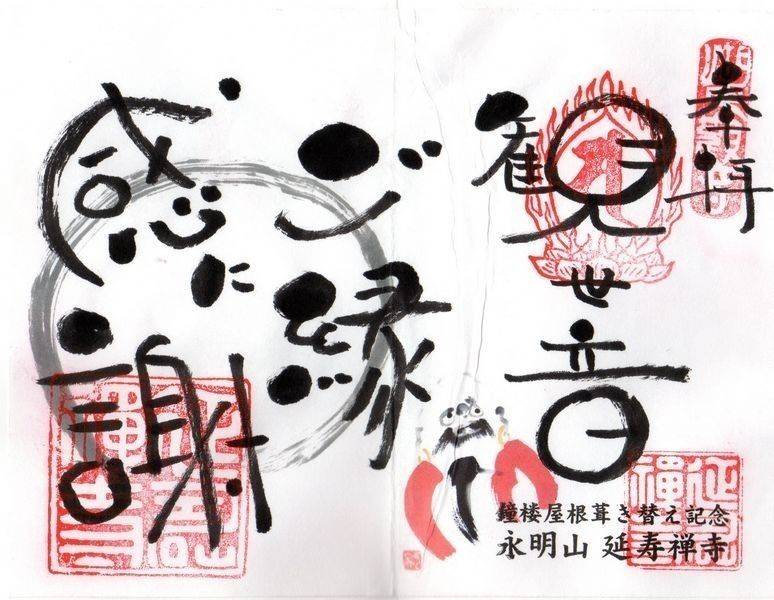 奉拝
観世音
ご縁に
感謝
鐘楼屋根葺き替え記念
永明山 延寿禅寺
延壽禅寺